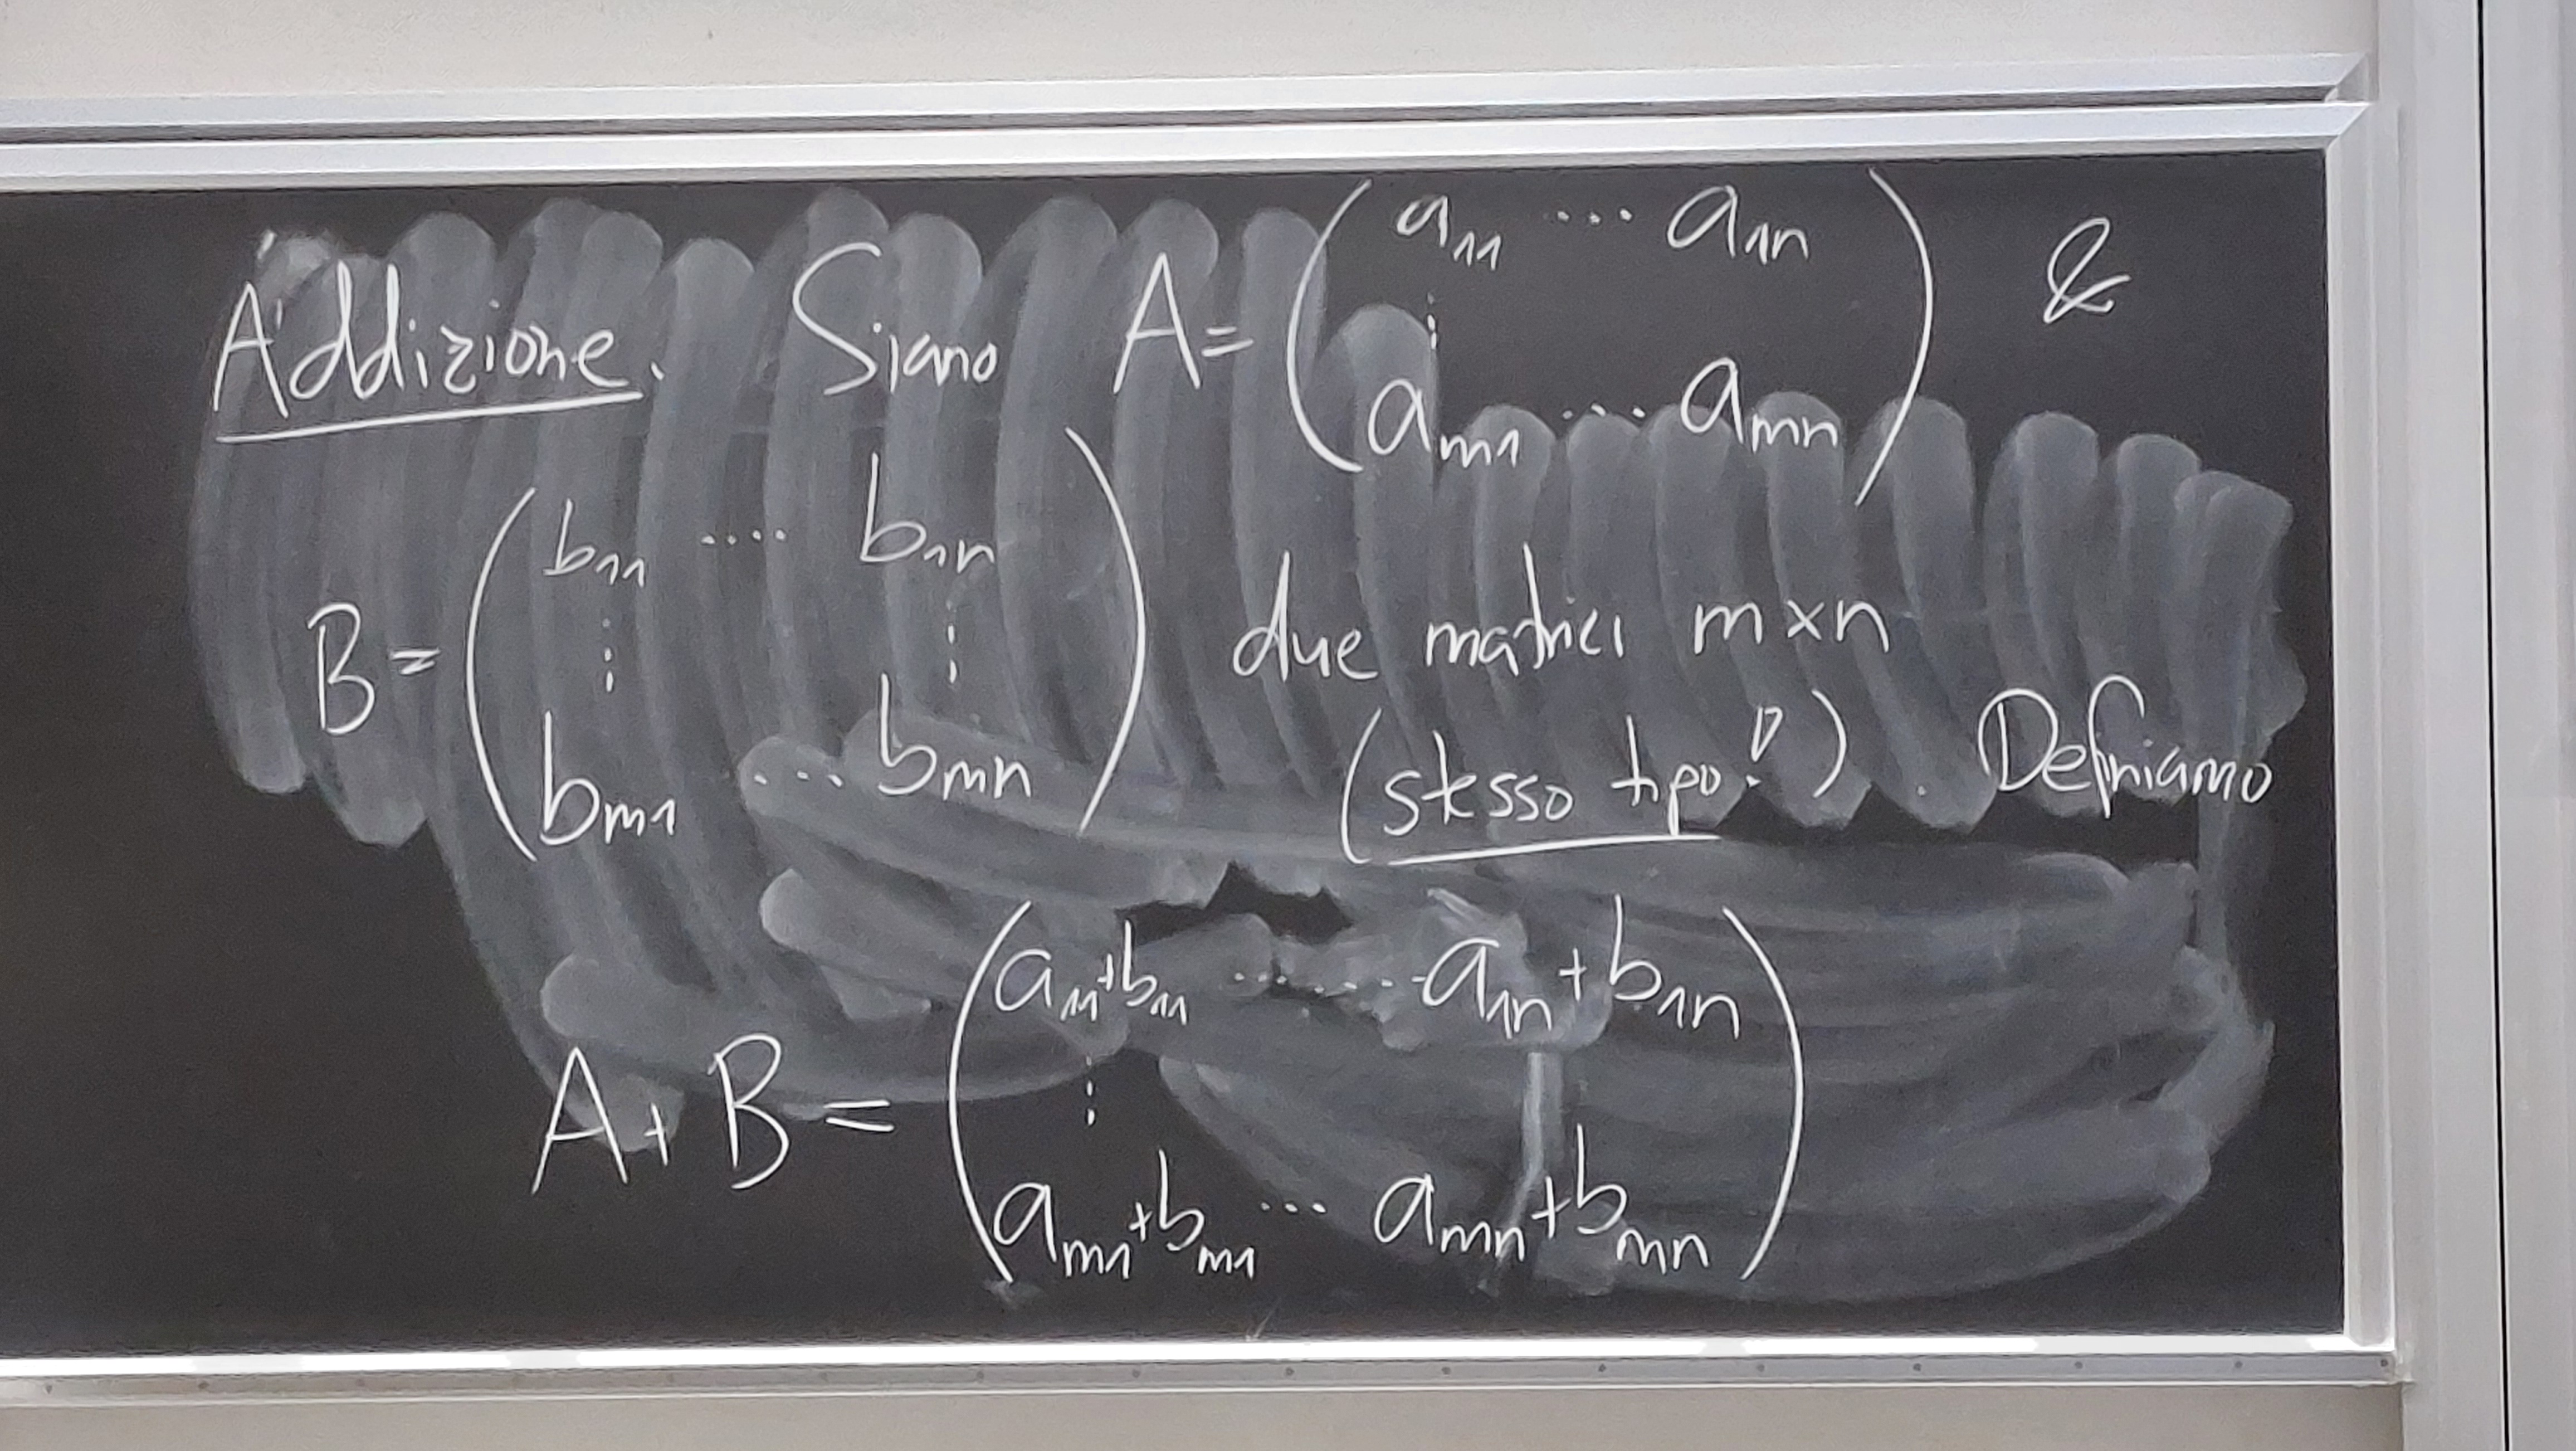 Addizione. Siano A = ( a₁₁ ... a₁ₙ ) &
⋮
aₘ₁ ... aₘₙ
B = ( b₁₁ .... b₁ₙ )
⋮ ⋮ due matrici m×n
bₘ₁ ... bₘₙ (stesso tipo!). Definiamo
A + B = ( a₁₁+b₁₁ ....... a₁ₙ+b₁ₙ )
⋮
aₘ₁+bₘ₁ ... aₘₙ+bₘₙ